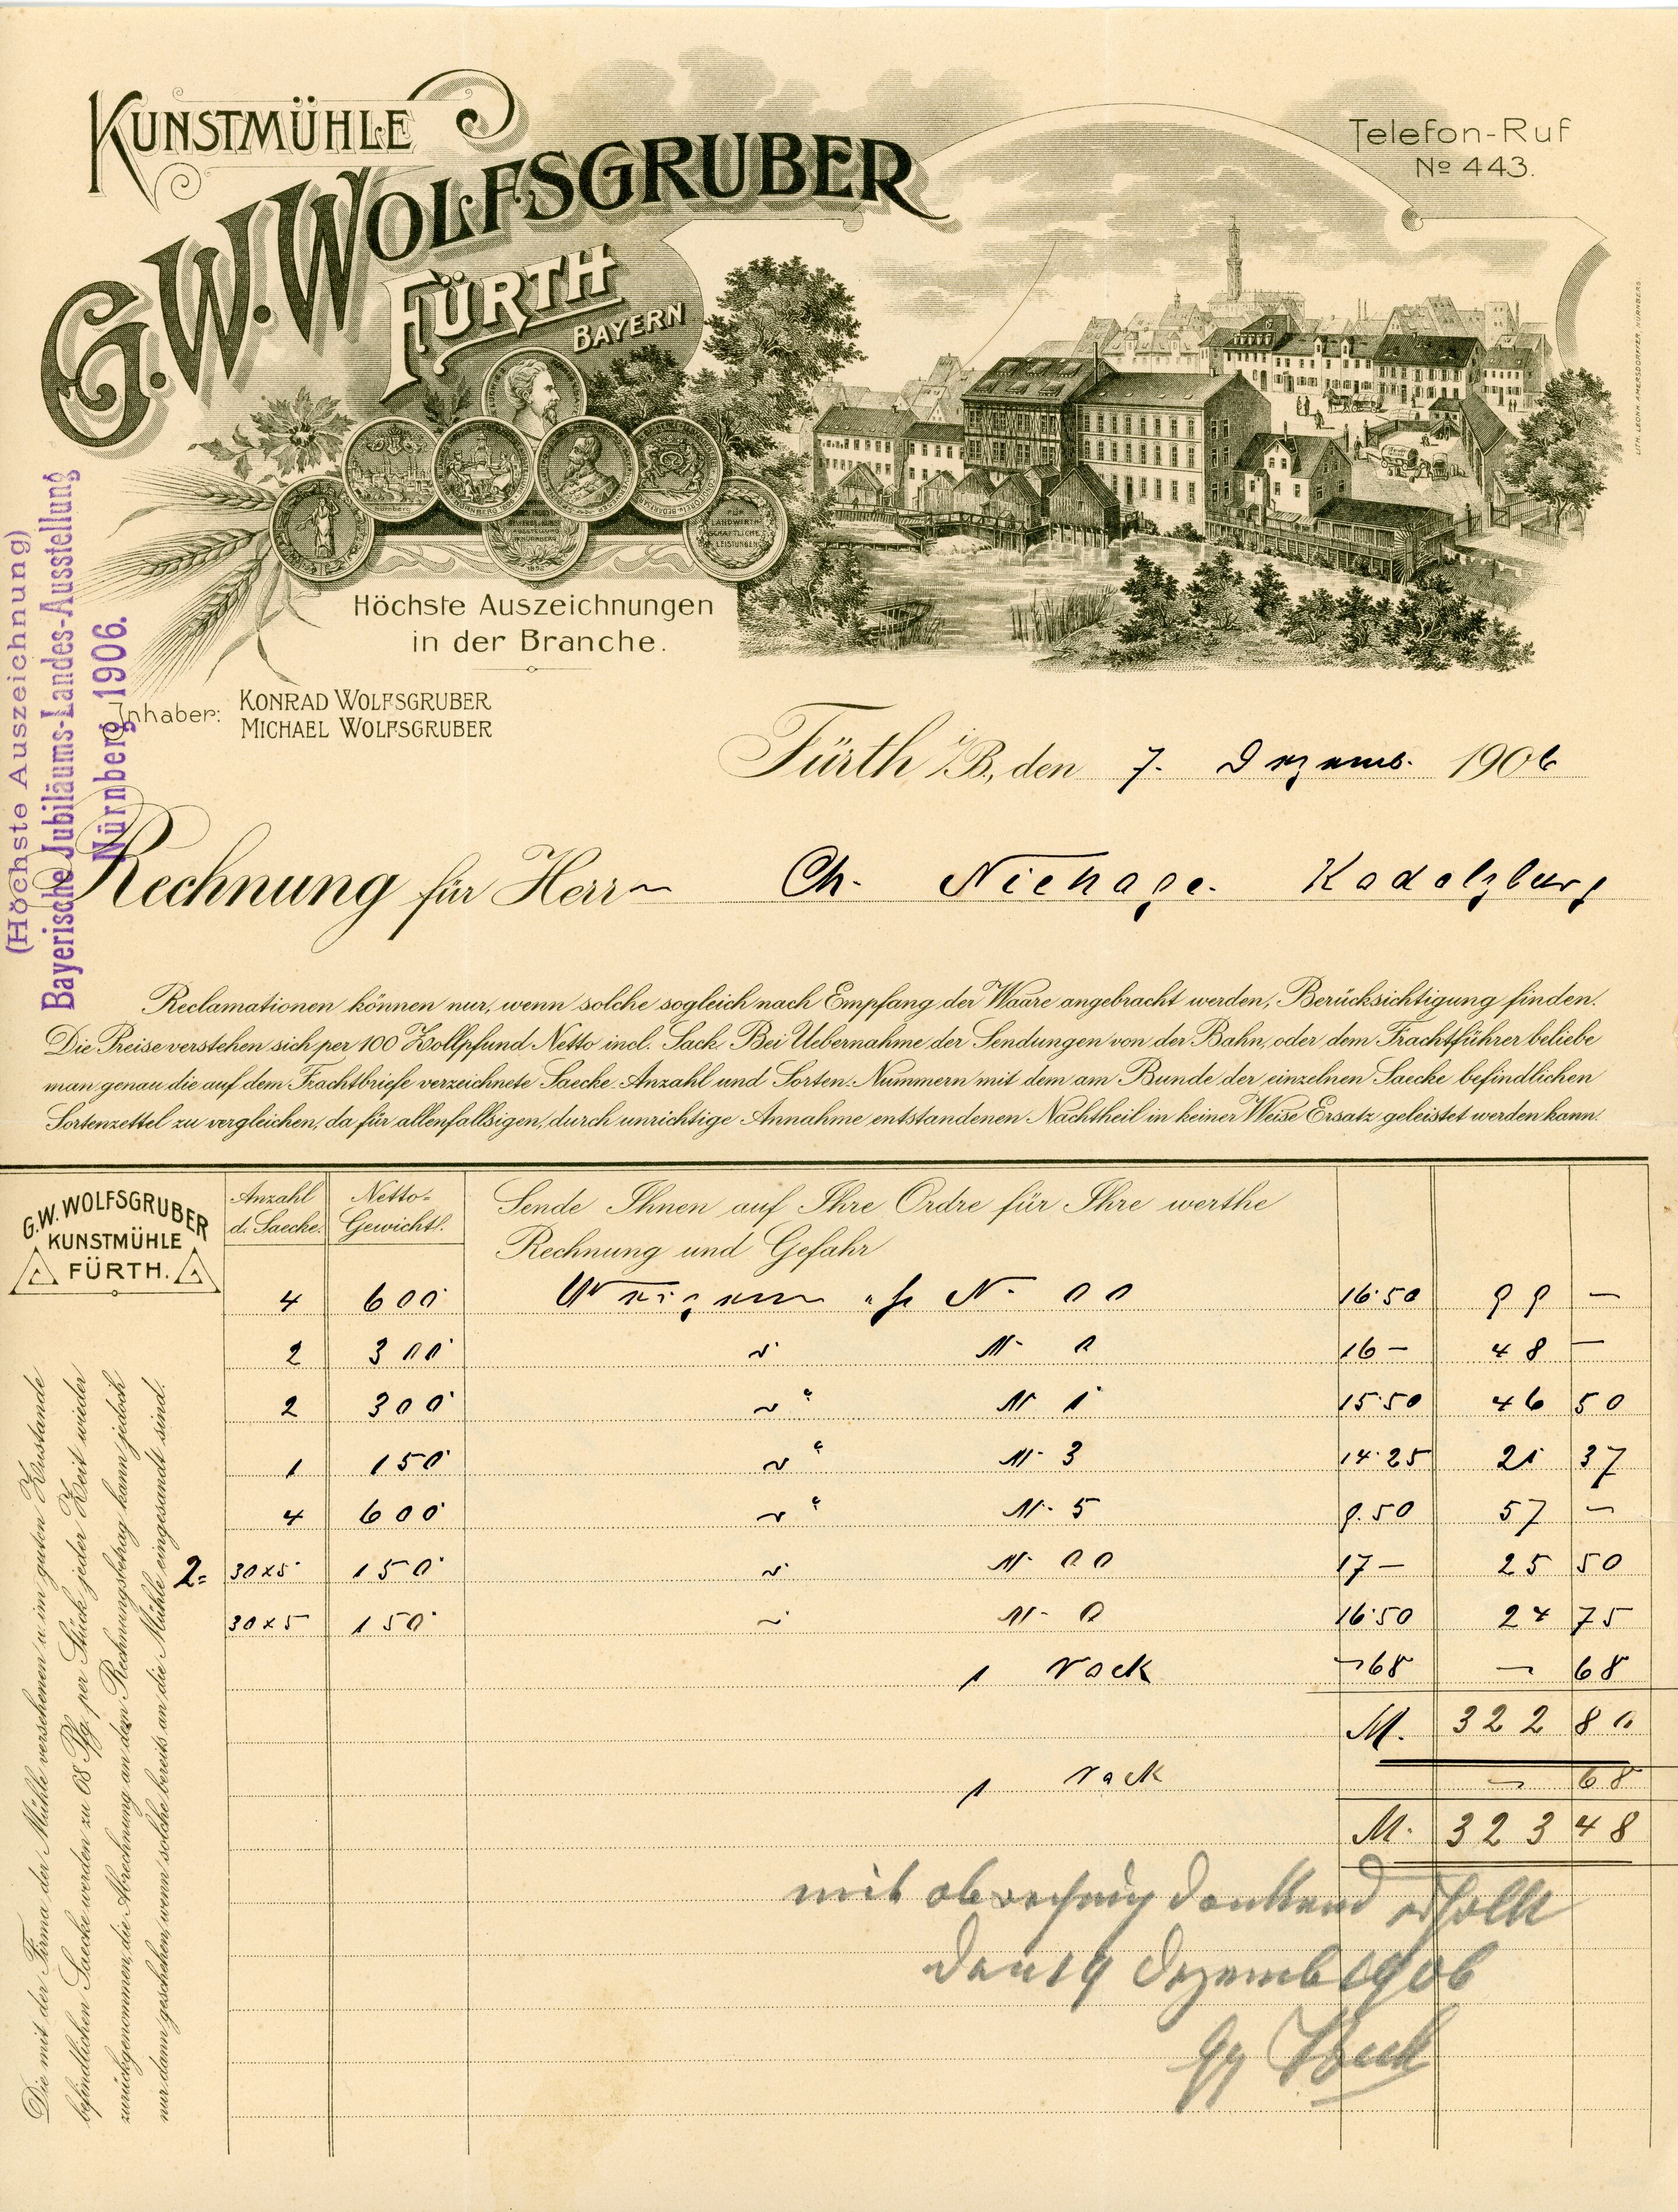 KUNSTMÜHLE
G.W. WOLFSGRUBER
FÜRTH
BAYERN
Telefon-Ruf
No 443.
LITH. LEONH. AMERSDORFFER, NÜRNBERG.
FÜR
LANDWIRTH
SCHAFTLICHE
LEISTUNGEN
Höchste Auszeichnungen
in der Branche.
(Höchste Auszeichnung)
Bayerische Jubiläums-Landes-Ausstellung
Nürnberg 1906.
Inhaber: KONRAD WOLFSGRUBER
MICHAEL WOLFSGRUBER
Fürth i/B., den 7. Dezemb. 1906
Rechnung für Herrn Ch. Kadolzburg
Reclamationen können nur, wenn solche sogleich nach Empfang der Waare angebracht werden, Berücksichtigung finden.
Die Preise verstehen sich per 100 Zollpfund Netto incl. Sack. Bei Uebernahme der Sendungen von der Bahn, oder dem Frachtführer beliebe
man genau die auf dem Frachtbriefe verzeichnete Saecke-Anzahl und Sorten-Nummern mit dem am Bunde der einzelnen Saecke befindlichen
Sortenzettel zu vergleichen, da für allenfallsigen, durch unrichtige Annahme entstandenen Nachtheil in keiner Weise Ersatz geleistet werden kann.
G.W. WOLFSGRUBER
KUNSTMÜHLE
FÜRTH.
Anzahl d. Saecke.
Netto-Gewicht
Sende Ihnen auf Ihre Ordre für Ihre werthe
Rechnung und Gefahr
4 600 Weizen N. 00 16.50 99 —
2 300 " N. 0 16 — 48 —
2 300 " N 1 15.50 46 50
1 150 " N. 3 14.25 21 37
4 600 " N. 5 9.50 57 —
2= 30x5 150 " N. 00 17 — 25 50
30x5 150 " N. 0 16.50 24 75
1 Sack —68 — 68
M. 322 80
1 Sack — 68
M. 323 48
mit dankend
den 19 Dezemb 1906
Die mit der Firma der Mühle versehenen u. im guten Zustande
befindlichen Saecke werden zu 68 Pfg. per Stück jeder Zeit wieder
zurückgenommen, die Abrechnung an dem Rechnungsbetrag kann jedoch
nur dann geschehen, wenn solche bereits an die Mühle eingesandt sind.